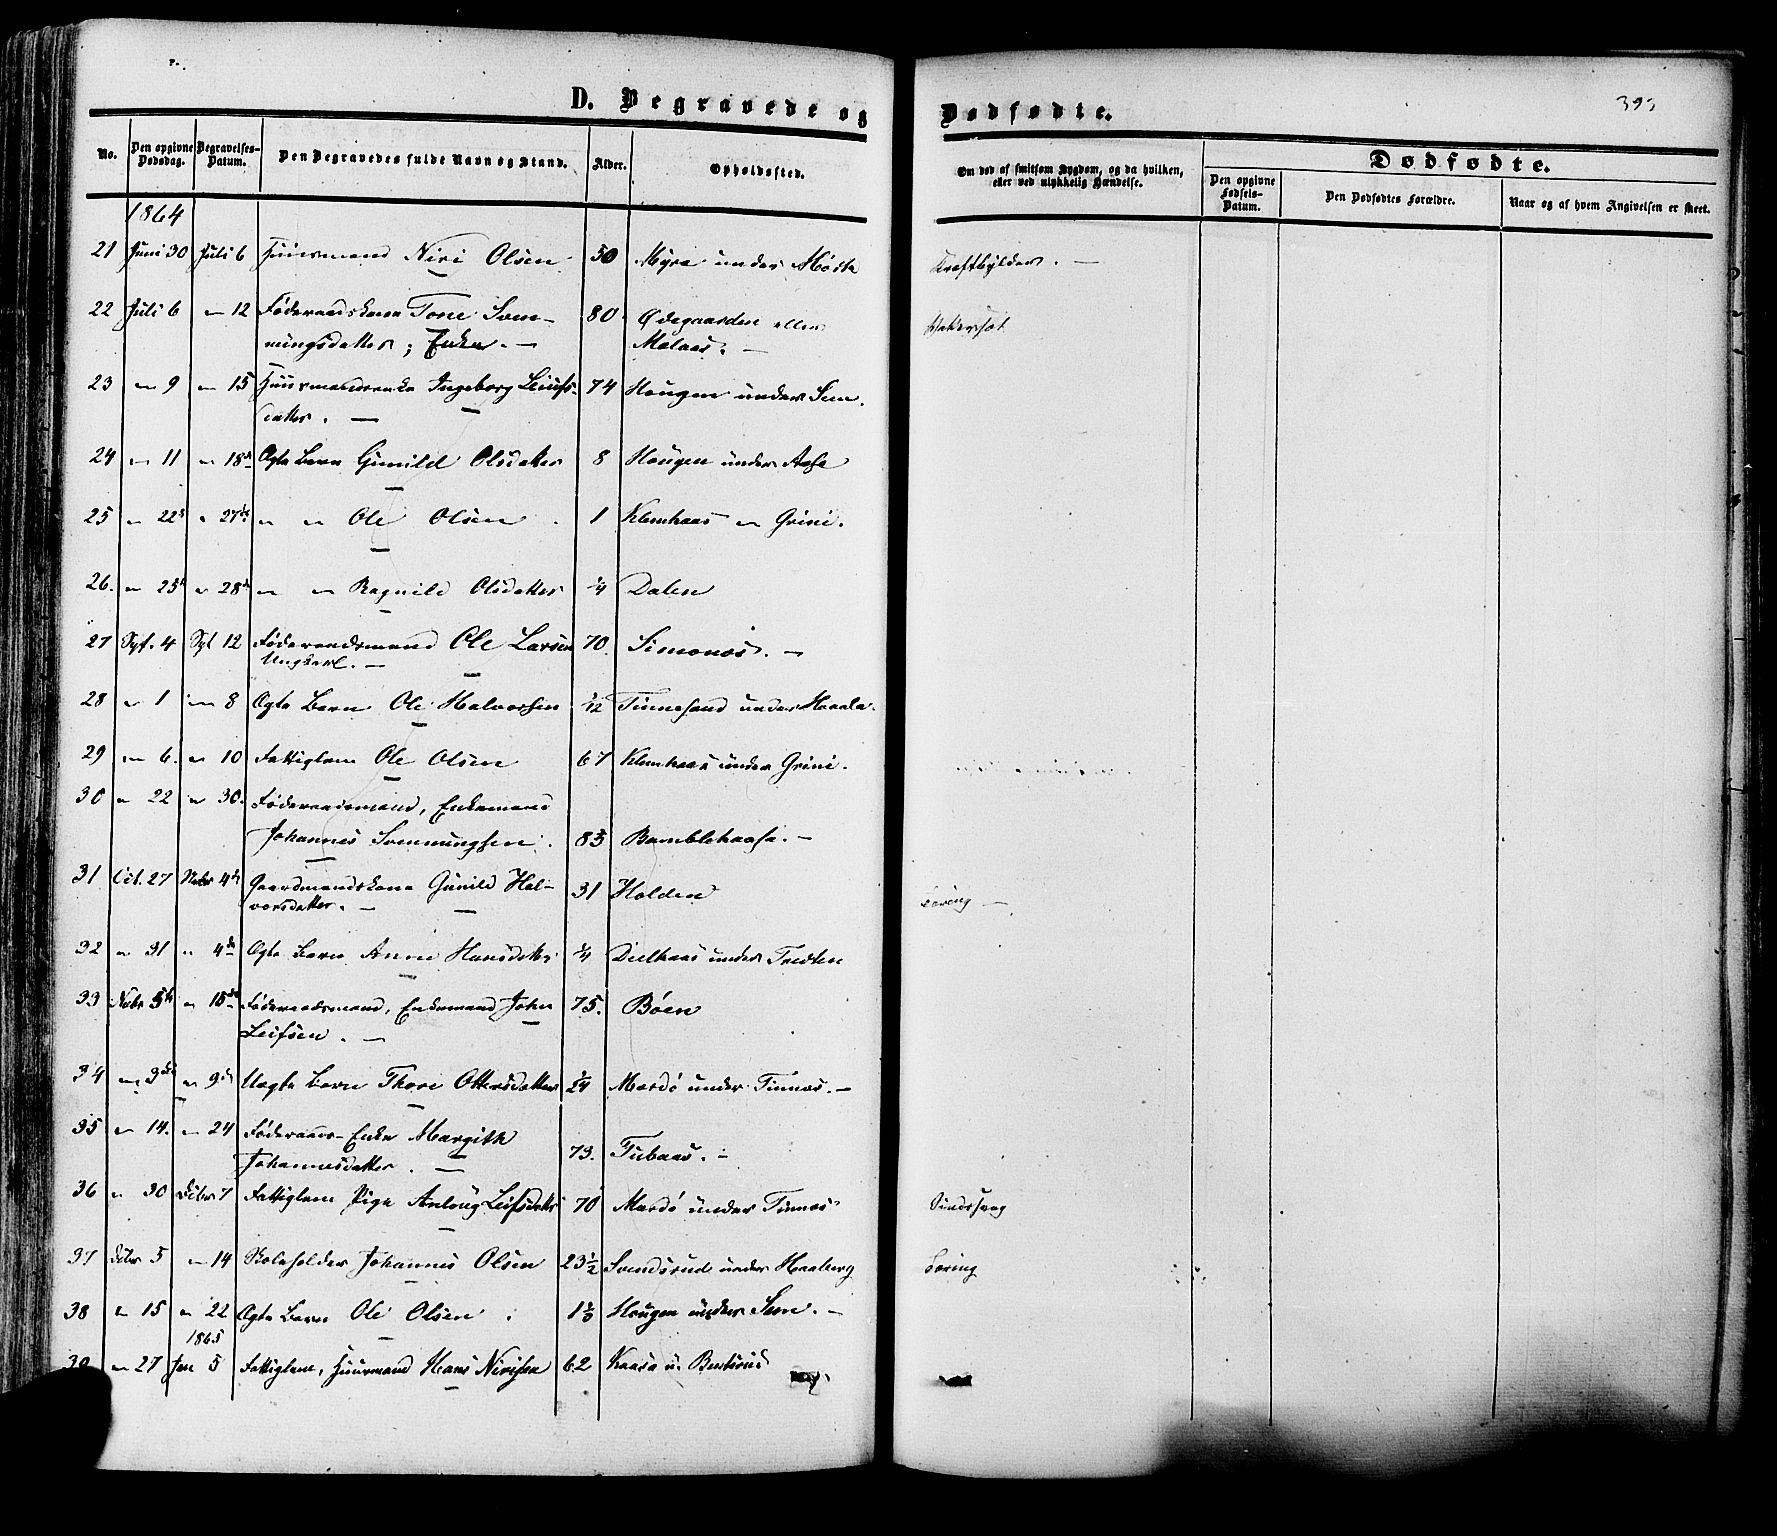 D. Begravede og Dødfødte.
393
No. Den opgivne Dødsdag. Begravelses-Datum. Den Begravedes fulde Navn og Stand. Alder. Opholdssted. Om død af smitsom Sygdom, og da hvilken, eller ved ulykkelig Hændelse. Dødfødte.
Den opgivne Fødsels-Datum. Den Dødfødtes Forældre. Naar og af hvem Angivelsen er skeet.
1864
21 Juni 30 Juli 6 Huusmand Niri Olsen 50 Myra under Kraftbylder. —
22 Juli 6 " 12 Føderaadskone Tone Svennungsdatter; Enke. — 80 Ødegaarden eller
23 " 9 " 15 Huusmandsenke Ingeborg Leiufsdatter. — 74 Hougen under Sem.
24 " 11 " 18de Ægte Barn Gunild Olsdatter 8 Hougen under Aase
25 " 22 " 27de " " Ole Olsen 1 Klemhaas " Grini.
26. " 25 " 28de " " Ragnild Olsdatter 1/4 Dalen
27 Sept. 4 Spt 12 Føderaadsmand Ole Larsen 70. Simonæs. —
Ungkarl. —
28 " 1 " 8 Ægte Barn Ole Halvorsen 1/12 Tinnesand under
29 " 6. " 10 Fattiglem Ole Olsen 67 Klemhaas under Grini.
30 " 22 " 30. Føderaadsmand, Enkemand
Johannes Svennungsen. 83 Bamblekaasa. —
31 Oct. 27 Nvbr 4de Gaardmandskone Gunild Halvorsdatter. — 31 Holden
32 " 31 " 4de Ægte Barn Anne Hansdatter 1/4 under
33 Nvbr 5te " 15de Føderaadsmand, Enkemand John
Leifsen. — 75. Bøen
34 " 3die " 9de Uægte Barn Thore Ottersdatter 1/24 Mardø under Tinnæs. —
35 " 14. " 24 Føderaads-Enke Margith
Johannesdatter. — 73. Tubaas. —
36 " 30 Decbr 7 Fattiglem Pige Anlaug Leifsdatter 70 Mardø under Tinnæs
37 Decbr 5 " 14 Skoleholder Johannes Olsen 23 1/2 Svendsrud under Haaberg Tæring
38 " 15 " 22 Ægte Barn Ole Olsen. Hougen under Sem. —
1865
39 " 27 Jan 5 Fattiglem, Huusmand Hans Nirisen 62 Kaasa u.